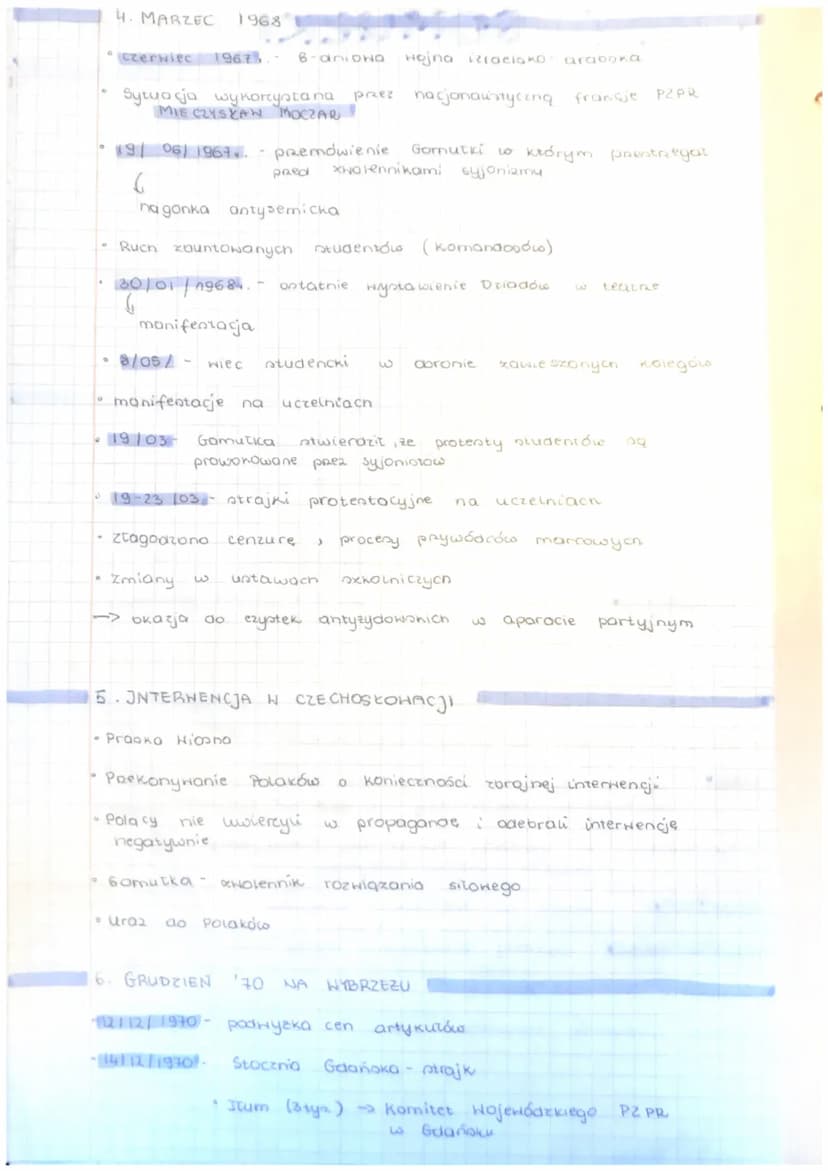 4. MARZEC 1968
• czerwiec 1967r. - 6-dniowa wojna izraelsko arabska
• Sytuacja wykorzystana przez nacjonalistyczną frakcję PZPR
MIECZYSŁAW MOCZAR
• 19/06/1967r. - przemówienie Gomułki w którym przestrzegał
przed zwolennikami syjonizmu
↳
nagonka antysemicka
• Ruch zbuntowanych studentów (Komandosów)
• 30/01/1968r. - ostatnie wystawienie Dziadów w teatrze
↳
manifestacja
• 8/03/ - wiec studencki w obronie zawieszonych kolegów
• manifestacje na uczelniach
• 19/03 - Gomułka stwierdził, że protesty studentów są
prowokowane przez syjonistów
• 19-23/03 - strajki protestacyjne na uczelniach
• złagodzono cenzurę, procesy przywódców marcowych
• zmiany w ustawach szkolniczych
→ okazja do czystek antyżydowskich w aparacie partyjnym
5. INTERWENCJA W CZECHOSŁOWACJI
• Praska Wiosna
• Przekonywanie Polaków o konieczności zbrojnej interwencji
• Polacy nie uwierzyli w propagandę i odebrali interwencję
negatywnie
• Gomułka - zwolennik rozwiązania siłowego
• uraz do Polaków
6. GRUDZIEŃ '70 NA WYBRZEŻU
• 12/12/1970 - podwyżka cen artykułów
• 14/12/1970r. Stocznia Gdańska - strajk
• Tłum (3 tys.) → Komitet Wojewódzkiego PZPR
w Gdańsku